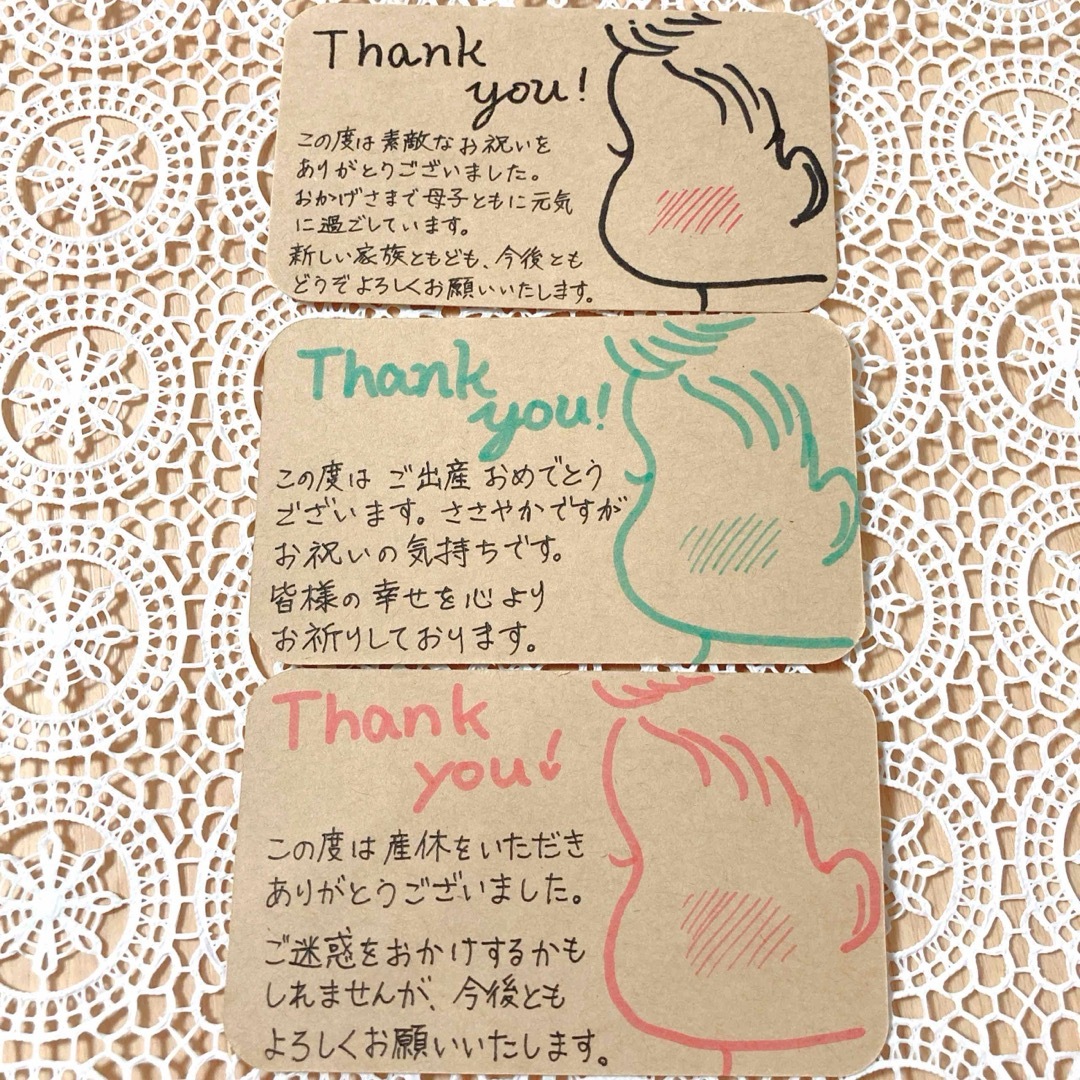 Thank
you!
この度は素敵なお祝いを
ありがとうございました。
おかげさまで母子ともに元気
に過ごしています。
新しい家族ともども、今後とも
どうぞよろしくお願いいたします。
Thank
you!
この度は ご出産 おめでとう
ございます。ささやかですが
お祝いの気持ちです。
皆様の幸せを心より
お祈りしております。
Thank
you!
この度は産休をいただき
ありがとうございました。
ご迷惑をおかけするかも
しれませんが、今後とも
よろしくお願いいたします。